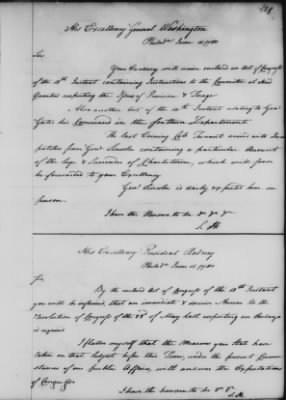 His Excellency General Washington
Philada June 15 1780
Sir,
Your Excellency will receive enclosed an Act of Congress
of the 12th Instant containing Instructions to the Committee at Head
Quarters respecting the of Provision & Forage
Also another Act of the 14th Instant relating to Genl
Gates his Command in the southern Department
The last Evening Lt Col Tennant arrived with Dis-
patches from Genl Lincoln containing a particular Account
of the Siege & Surrender of Charlestown, which will soon
be forwarded to your Excellency
Genl Lincoln is daily expected here in
person.
I have the Honour to be &c &c &c
S. H.
His Excellency President Rodney
Philada June 15 1780
Sir
By the enclosed Act of Congress of the 12th Instant
you will be informed, that an immediate & Answer to the
Resolution of Congress of the 22d of May last respecting
is required
I flatter myself that the Measures you have
taken on that Subject before this Time, under the present Circum-
stances of our public Affairs, will answer the Expectations
of Congress
I have the honour to be &c &c
S. H.